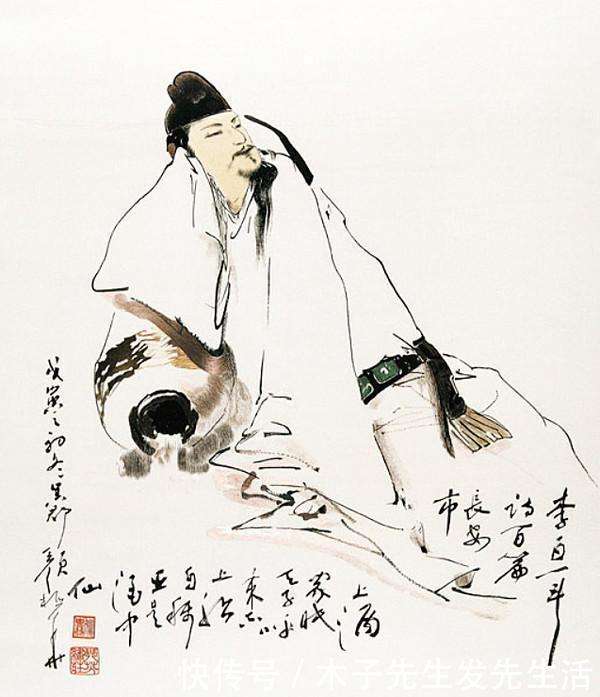 李白一斗
诗百篇
長安
市
上酒
家眠
天子呼
来不
上船
自稱
臣是
酒中
仙
戊寅之初冬
颜梅华
快传号 / 木子先生发先生活